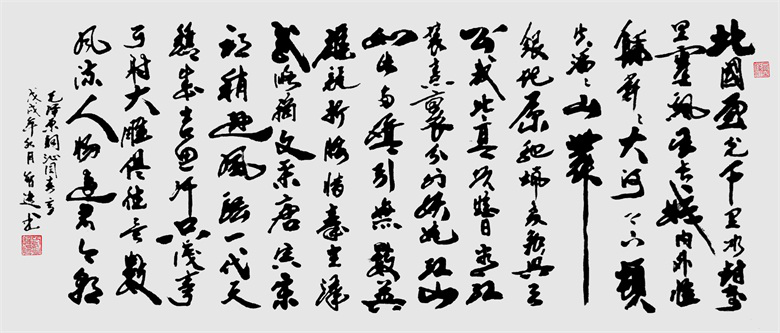 北國風光千里冰封萬
里雪飄望長城內外惟
餘莽〻大河上下頓
失滔〻山舞
銀蛇原馳蠟象欲與天
公試比高須晴日看紅
裝素裹分外妖嬈江山
如此多嬌引無數英
雄競折腰惜秦皇漢
武略輸文采唐宗宋
祖稍遜風騷一代天
驕成吉思汗只識彎
弓射大雕俱往矣數
風流人物還看今朝
毛澤東詞沁園春雪
戊戌年秋月